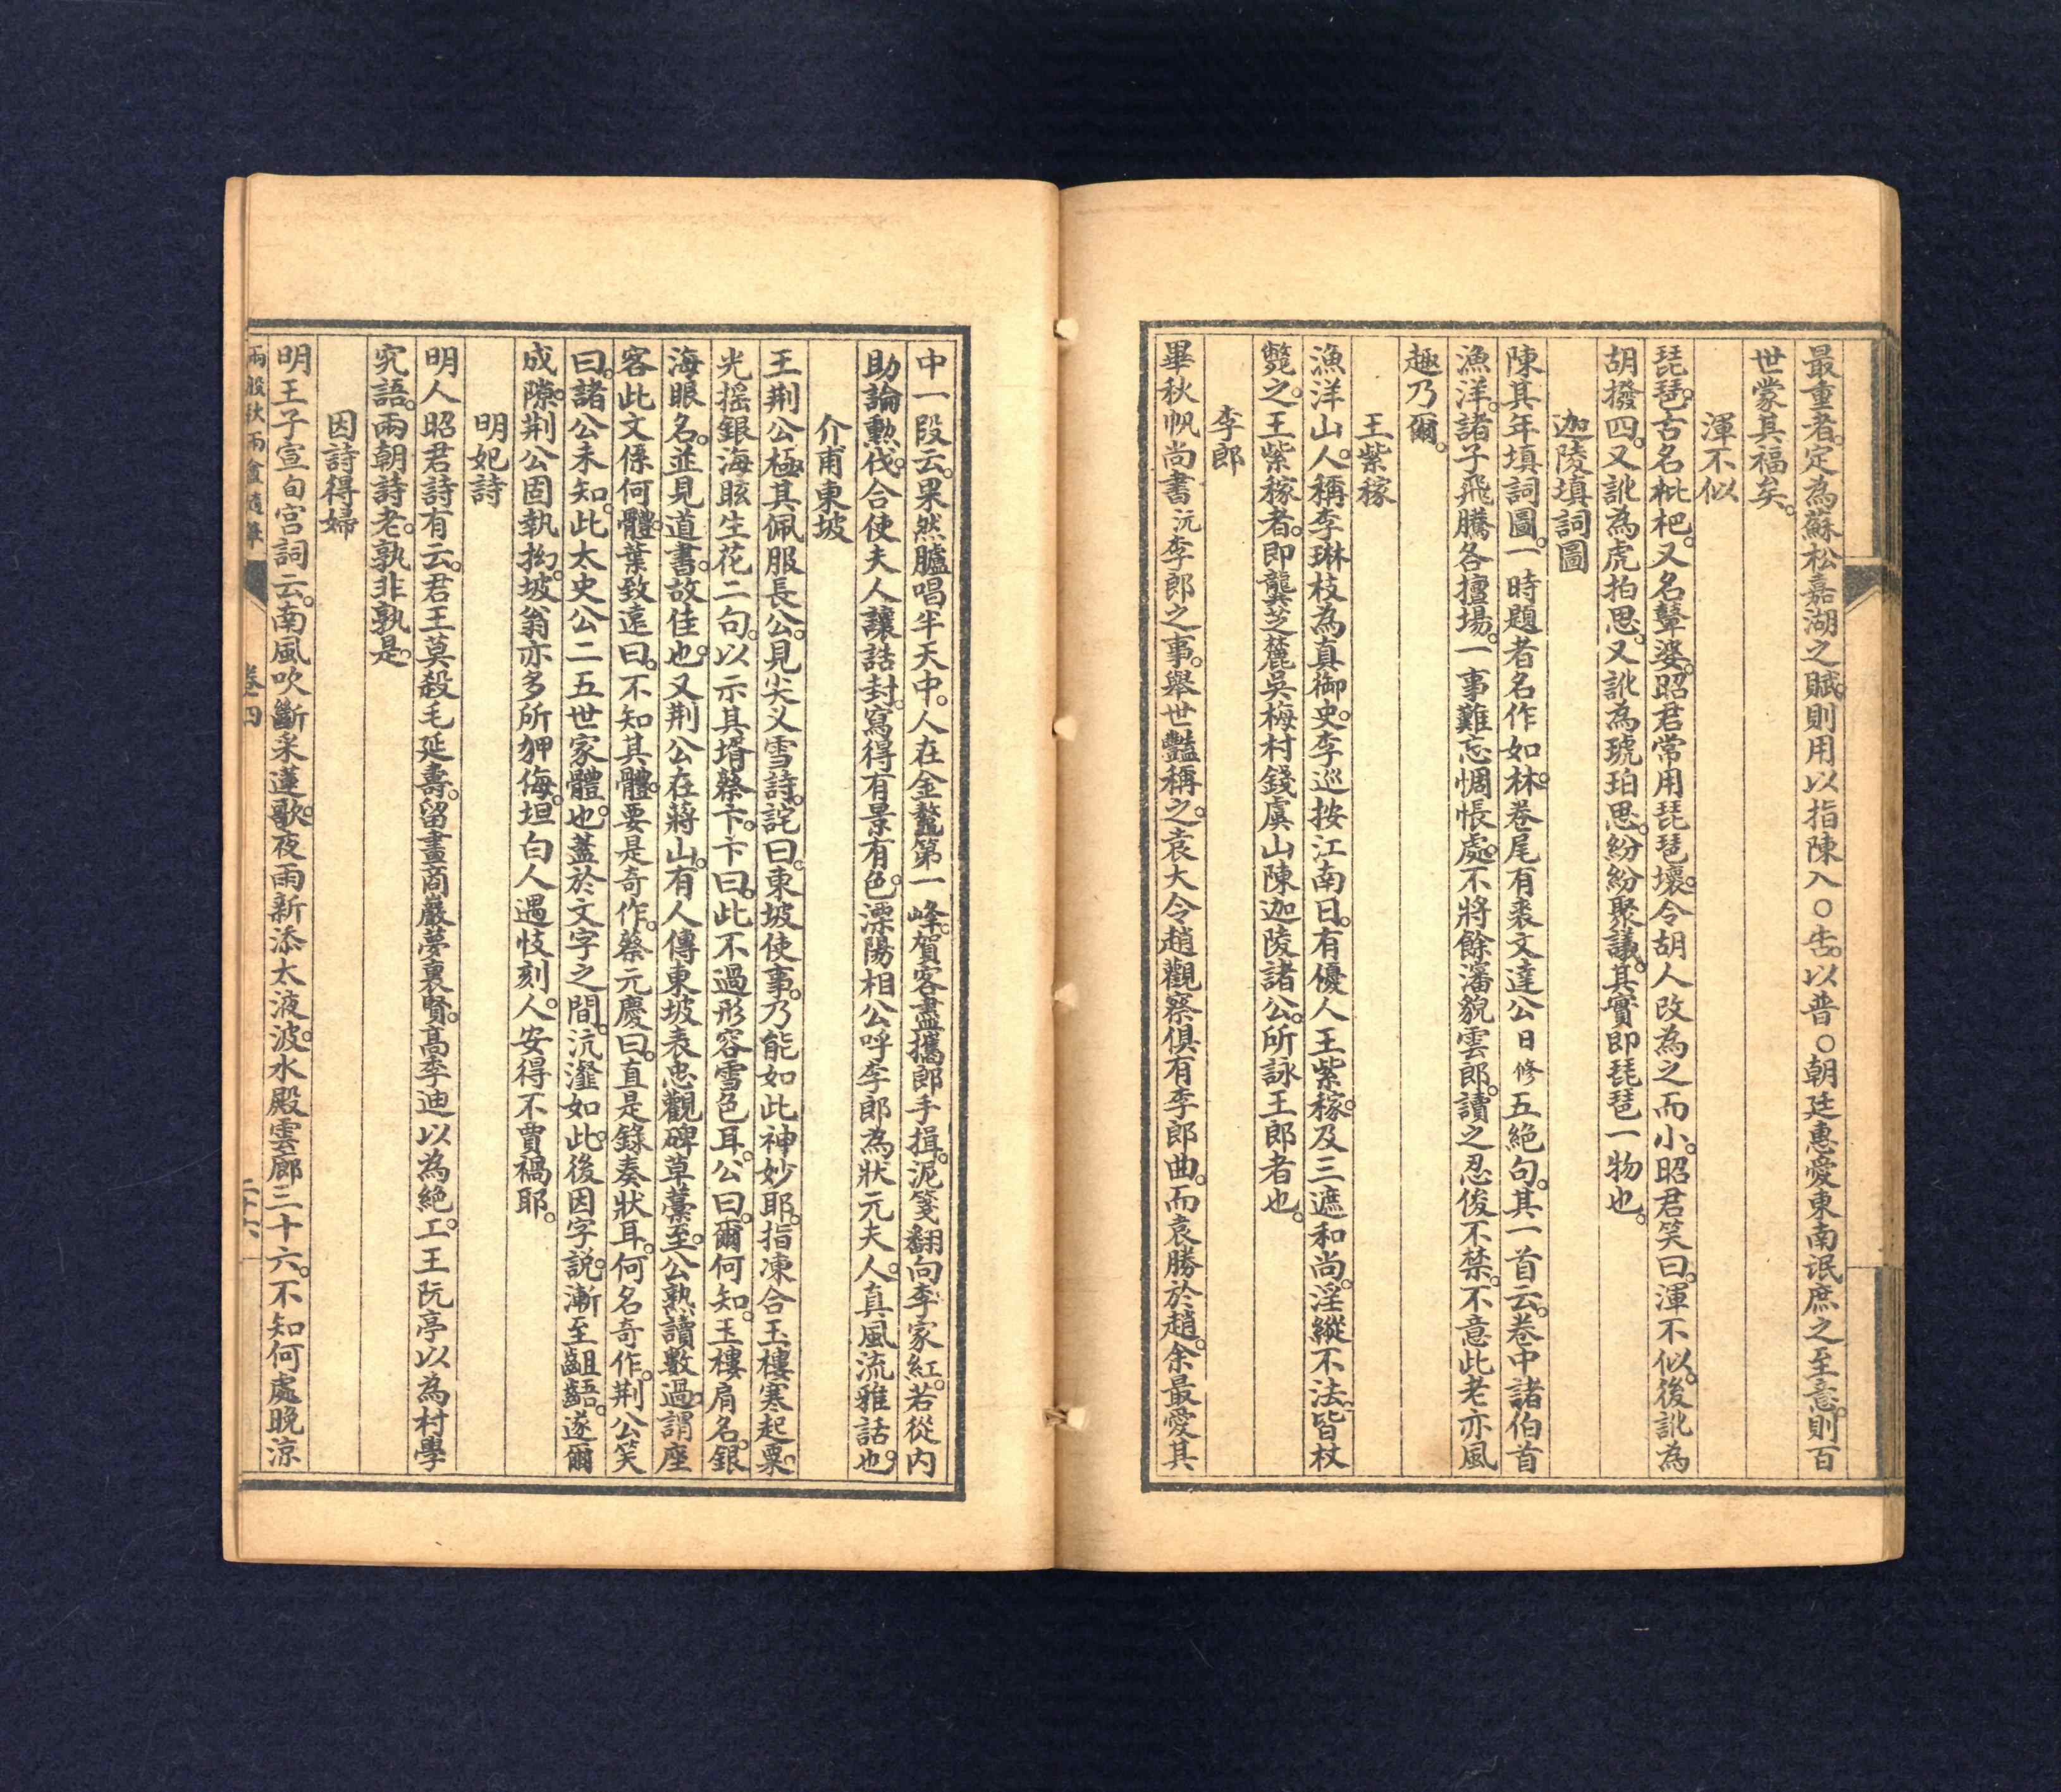 最重者。定為蘇松嘉湖之賦。則用以指陳入〇告。以普〇朝廷惠愛東南氓庶之至意。則百
世蒙其福矣。
渾不似
琵琶。古名枇杷。又名鼙婆。昭君常用琵琶壞。令胡人改為之而小。昭君笑曰。渾不似。後訛為
胡撥四。又訛為虎拍思。又訛為琥珀思。紛紛聚議。其實即琵琶一物也。
迦陵填詞圖
陳其年填詞圖。一時題者名作如林。卷尾有裘文達公日修五絕句。其一首云。卷中諸伯首
漁洋。諸子飛騰各擅場。一事難忘惆悵處。不將餘瀋貌雲郎。讀之忍俊不禁。不意此老亦風
趣乃爾。
王紫稼
漁洋山人。稱李琳枝為真御史。李巡按江南日。有優人王紫稼。及三遮和尚。淫縱不法。皆杖
斃之。王紫稼者。即龔芝麓吳梅村錢虞山陳迦陵諸公。所詠王郎者也。
李郎
畢秋帆尚書沅李郎之事。舉世豔稱之。袁大令趙觀察俱有李郎曲。而袁勝於趙。余最愛其
中一段云。果然臚唱半天中。人在金鰲第一峰。賀客盡攜郎手揖。泥箋翻向李家紅。若從內
助論勳伐。合使夫人讓誥封。寫得有景有色。溧陽相公呼李郎為狀元夫人。真風流雅話也。
介甫東坡
王荆公極其佩服長公。見尖叉雪詩。詫曰。東坡使事。乃能如此神妙耶。指凍合玉樓寒起粟。
光搖銀海眩生花二句。以示其壻蔡卞。卞曰。此不過形容雪色耳。公曰。爾何知。玉樓肩名。銀
海眼名。並見道書。故佳也。又荆公在蔣山。有人傳東坡表忠觀碑草藁至。公熟讀數過。謂座
客此文係何體。葉致遠曰。不知其體。要是奇作。蔡元慶曰。直是錄奏狀耳。何名奇作。荆公笑
曰。諸公未知。此太史公二五世家體也。蓋於文字之間。沆瀣如此。後因字說。漸至齟齬。遂爾
成隙。荆公固執拗。坡翁亦多所狎侮。坦白人遇忮刻人。安得不賈禍耶。
明妃詩
明人昭君詩有云。君王莫殺毛延壽。留畫商巖夢裏賢。高季迪以為絕工。王阮亭以為村學
究語。兩朝詩老。孰非孰是。
因詩得婦
明王子宣旬宮詞云。南風吹斷采蓮歌。夜雨新添太液波。水殿雲廊三十六。不知何處晚涼
兩般秋雨盦隨筆 卷四 二十六